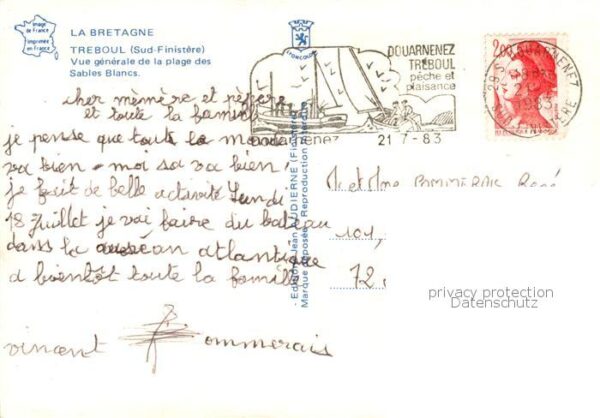 Image de France
Imprimée en France
LA BRETAGNE
TREBOUL (Sud-Finistère)
Vue générale de la plage des
Sables Blancs.
DOUARNENEZ
TRÉBOUL
pêche et
plaisance
21-7-83
2,00
DOUARNENEZ
1983
cher mèmère et pépère
et toute la famille
je pense que toute la monde
va bien - moi sa va bien,
je fait de belle activité Lundi
18 Juillet je vai faire du bateau
dans la océan atlantique
a bientôt toute la famille
vincent Pommerais
- Editions Jean AUDIERNE (Finistère)
Marque déposée - Reproduction interdite
M et Mme POMMERAIS René
101,
72.
privacy protection
Datenschutz